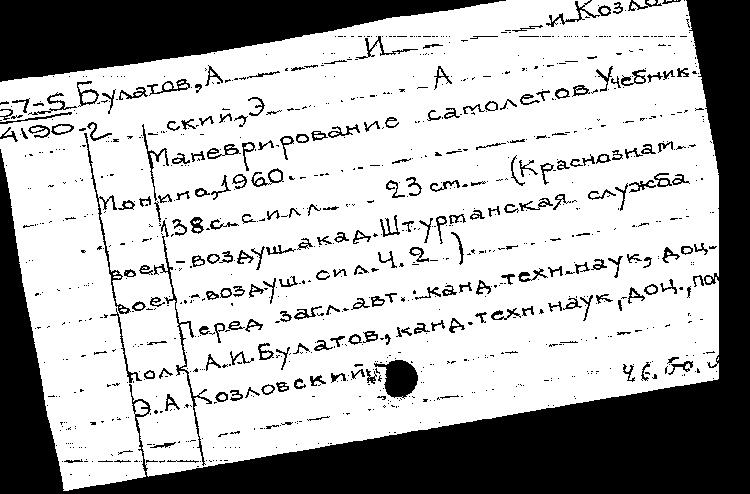 57-5 Булатов, А И и Козлов
4190-2 ский, Э А
Маневрирование самолетов Учебник.
Монино, 1960.
138 с. с илл. 23 см. (Краснознам.
воен.-воздуш. акад. Штурманская служба
воен.-воздуш. сил. Ч. 2)
Перед загл. авт.: канд. техн. наук, доц.
полк. А. И. Булатов, канд. техн. наук, доц., пол
Э. А. Козловский